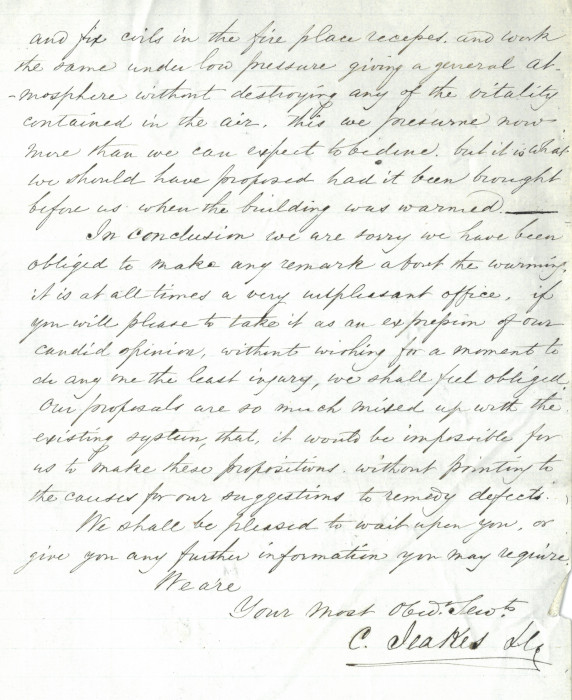 and fix coils in the fire place recepes. and work
the same under low pressure giving a general at-
-mosphere without destroying any of the vitality
contained in the air. this we presume now
more than we can expect to be done. but it is what
we should have proposed had it been brought
before us when the building was warmed.
In conclusion we are sorry we have been
obliged to make any remark about the warming,
it is at all times a very unpleasant office, if
you will please to take it as an expression of our
candid opinion, without wishing for a moment to
do any one the least injury, we shall feel obliged.
Our proposals are so much mixed up with the
existing system, that, it would be impossible for
us to make these propositions. without pointing to
the causes for our suggestions to remedy defects.
We shall be pleased to wait upon you, or
give you any further information you may require.
We are
Your most Obdt. Servts
C. Jeakes &Co